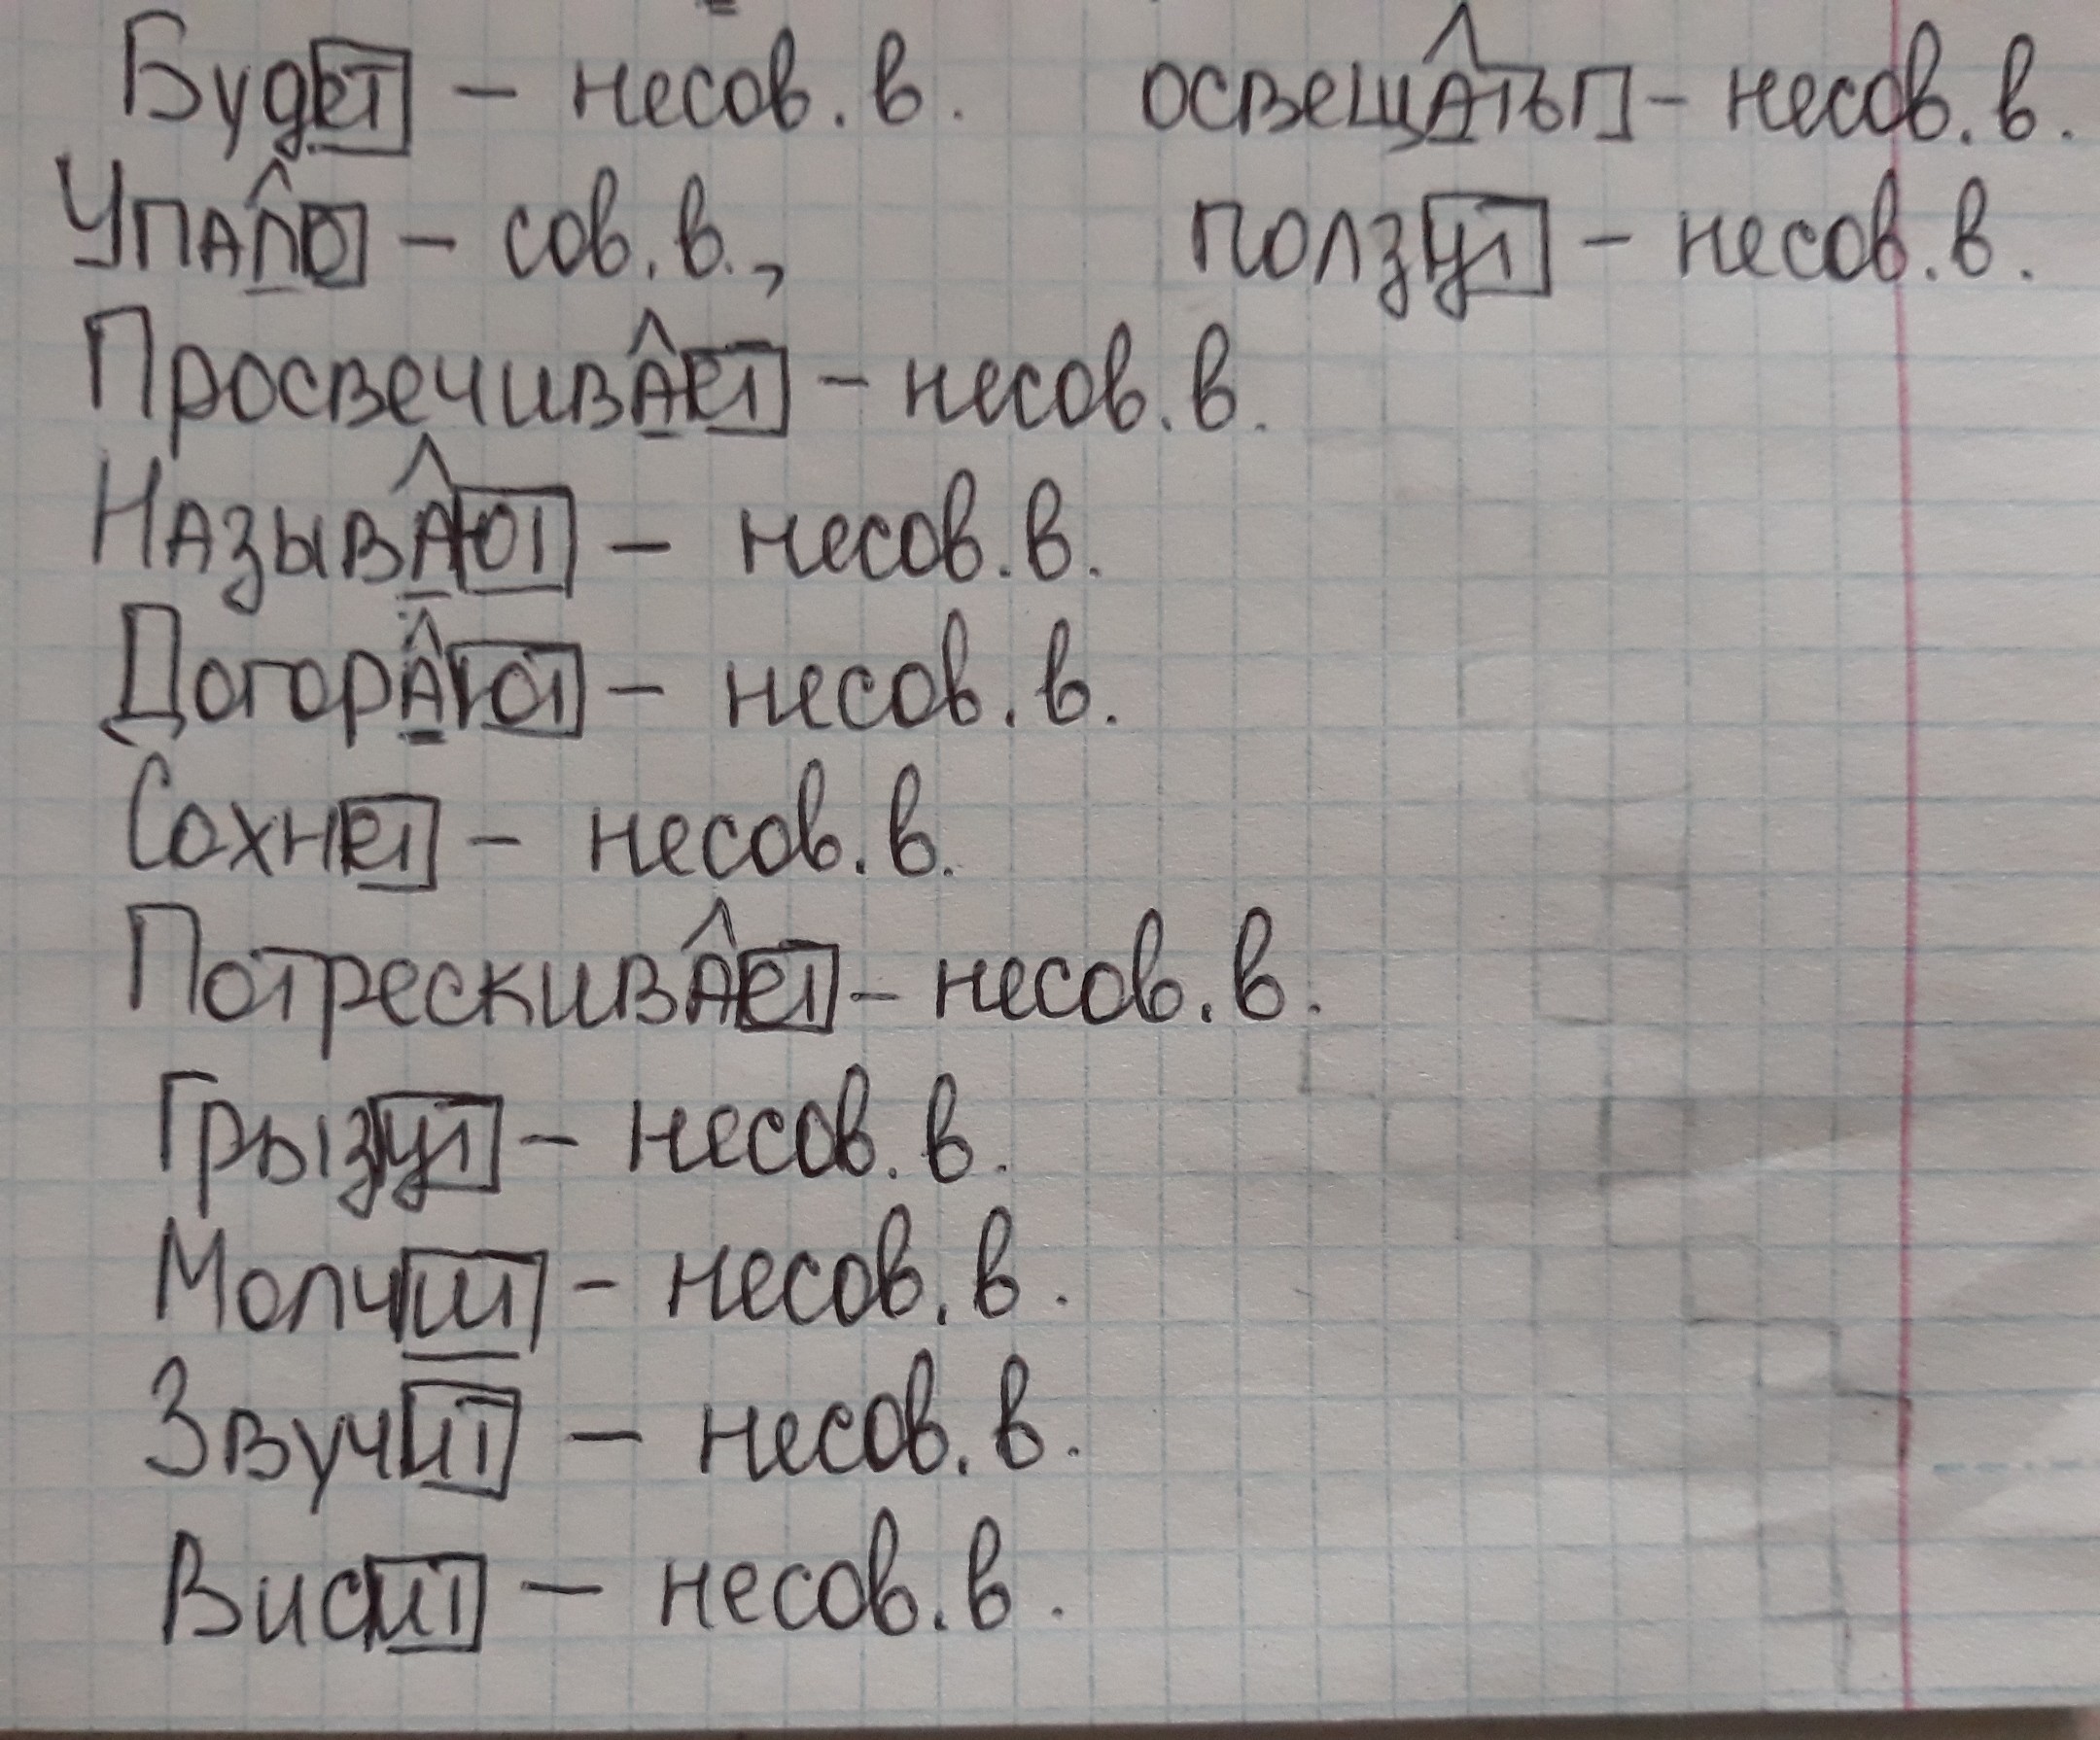 Будет – несов. в. освещать – несов. в.
Упало – сов. в., ползут – несов. в.
Просвечивает – несов. в.
Называют – несов. в.
Догорают – несов. в.
Сохнет – несов. в.
Потрескивает – несов. в.
Грызут – несов. в.
Молчит – несов. в.
Звучит – несов. в.
Висит – несов. в.